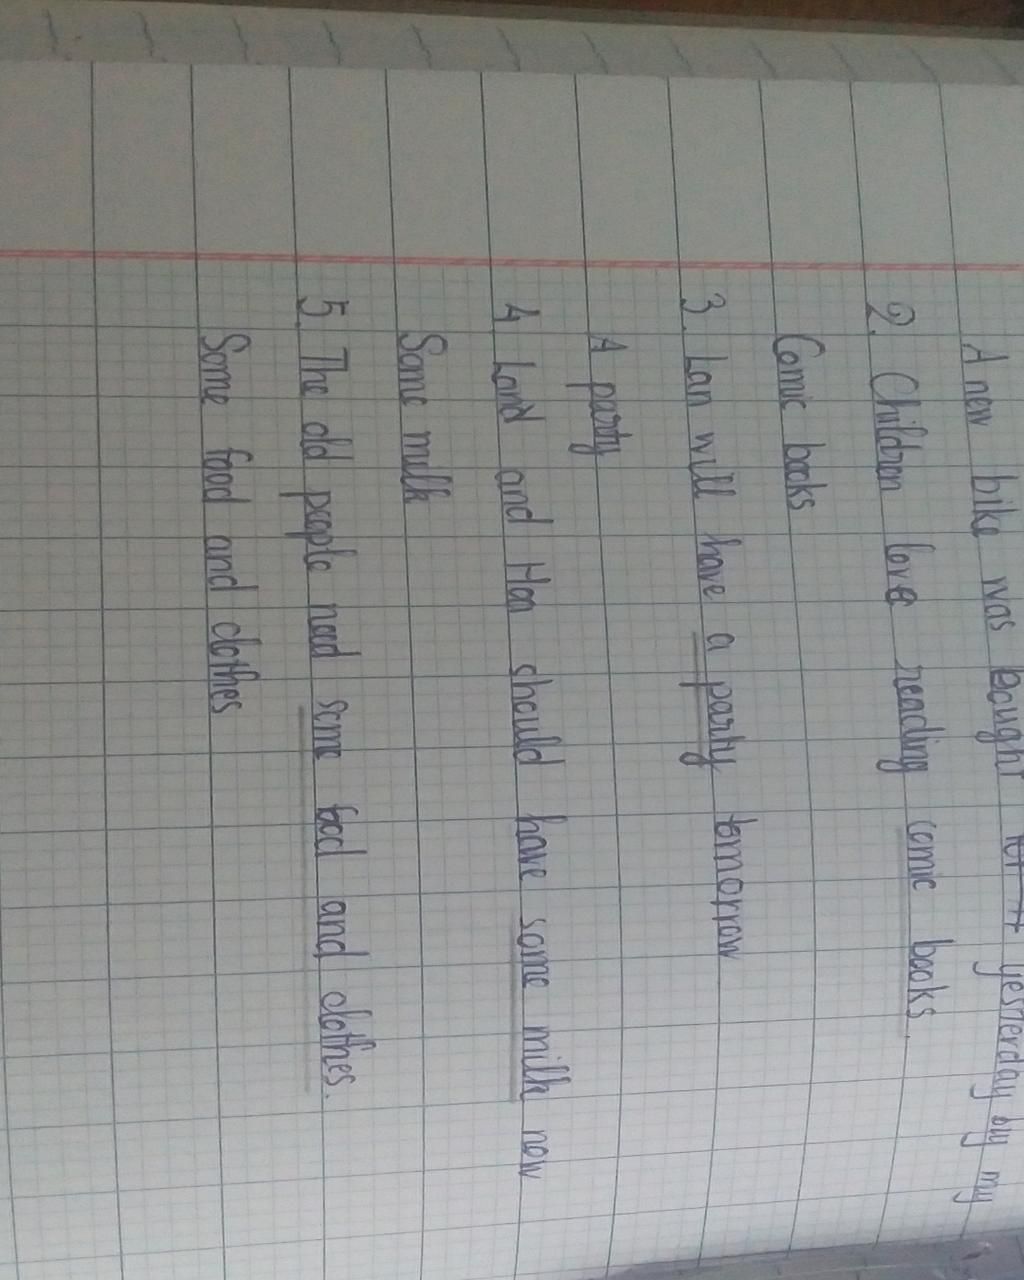 A new bike was bought yesterday by my
2. Children love reading comic books.
Comic books
3. Lan will have a party tomorrow
A party
4 Land and Hoa should have some milk now
Some milk
5. The old people need some food and clothes.
Some food and clothes